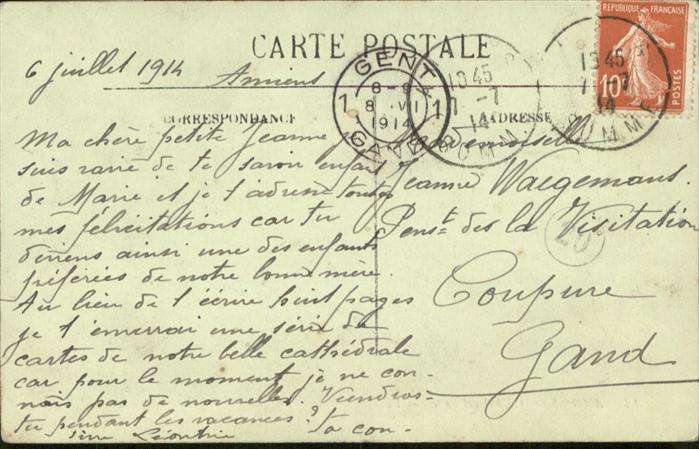 CARTE POSTALE
6 juillet 1914 Amiens
CORRESPONDANCE
ADRESSE
GENT 1
8-9
8 VII
1914
GAND
1345
7-7
14
SOMME
1345
7-7
14
SOMME
RÉPUBLIQUE FRANÇAISE
10c
POSTES
20
Ma chère petite Jeanne je
suis ravie de te savoir enfant
de Marie et je t'adresse toutes
mes félicitations car tu
deviens ainsi une des enfants
préférées de notre bonne mère.
Au lieu de t'écrire huit pages
je t'enverrai une série de
cartes de notre belle cathédrale
car pour le moment je ne con-
nais pas de nouvelles. Viendras-
tu pendant les vacances? Ta cou-
sine Léontine
Mademoiselle
Jeanne Waegemans.
Pens.t des de la Visitation
Coupure
Gand